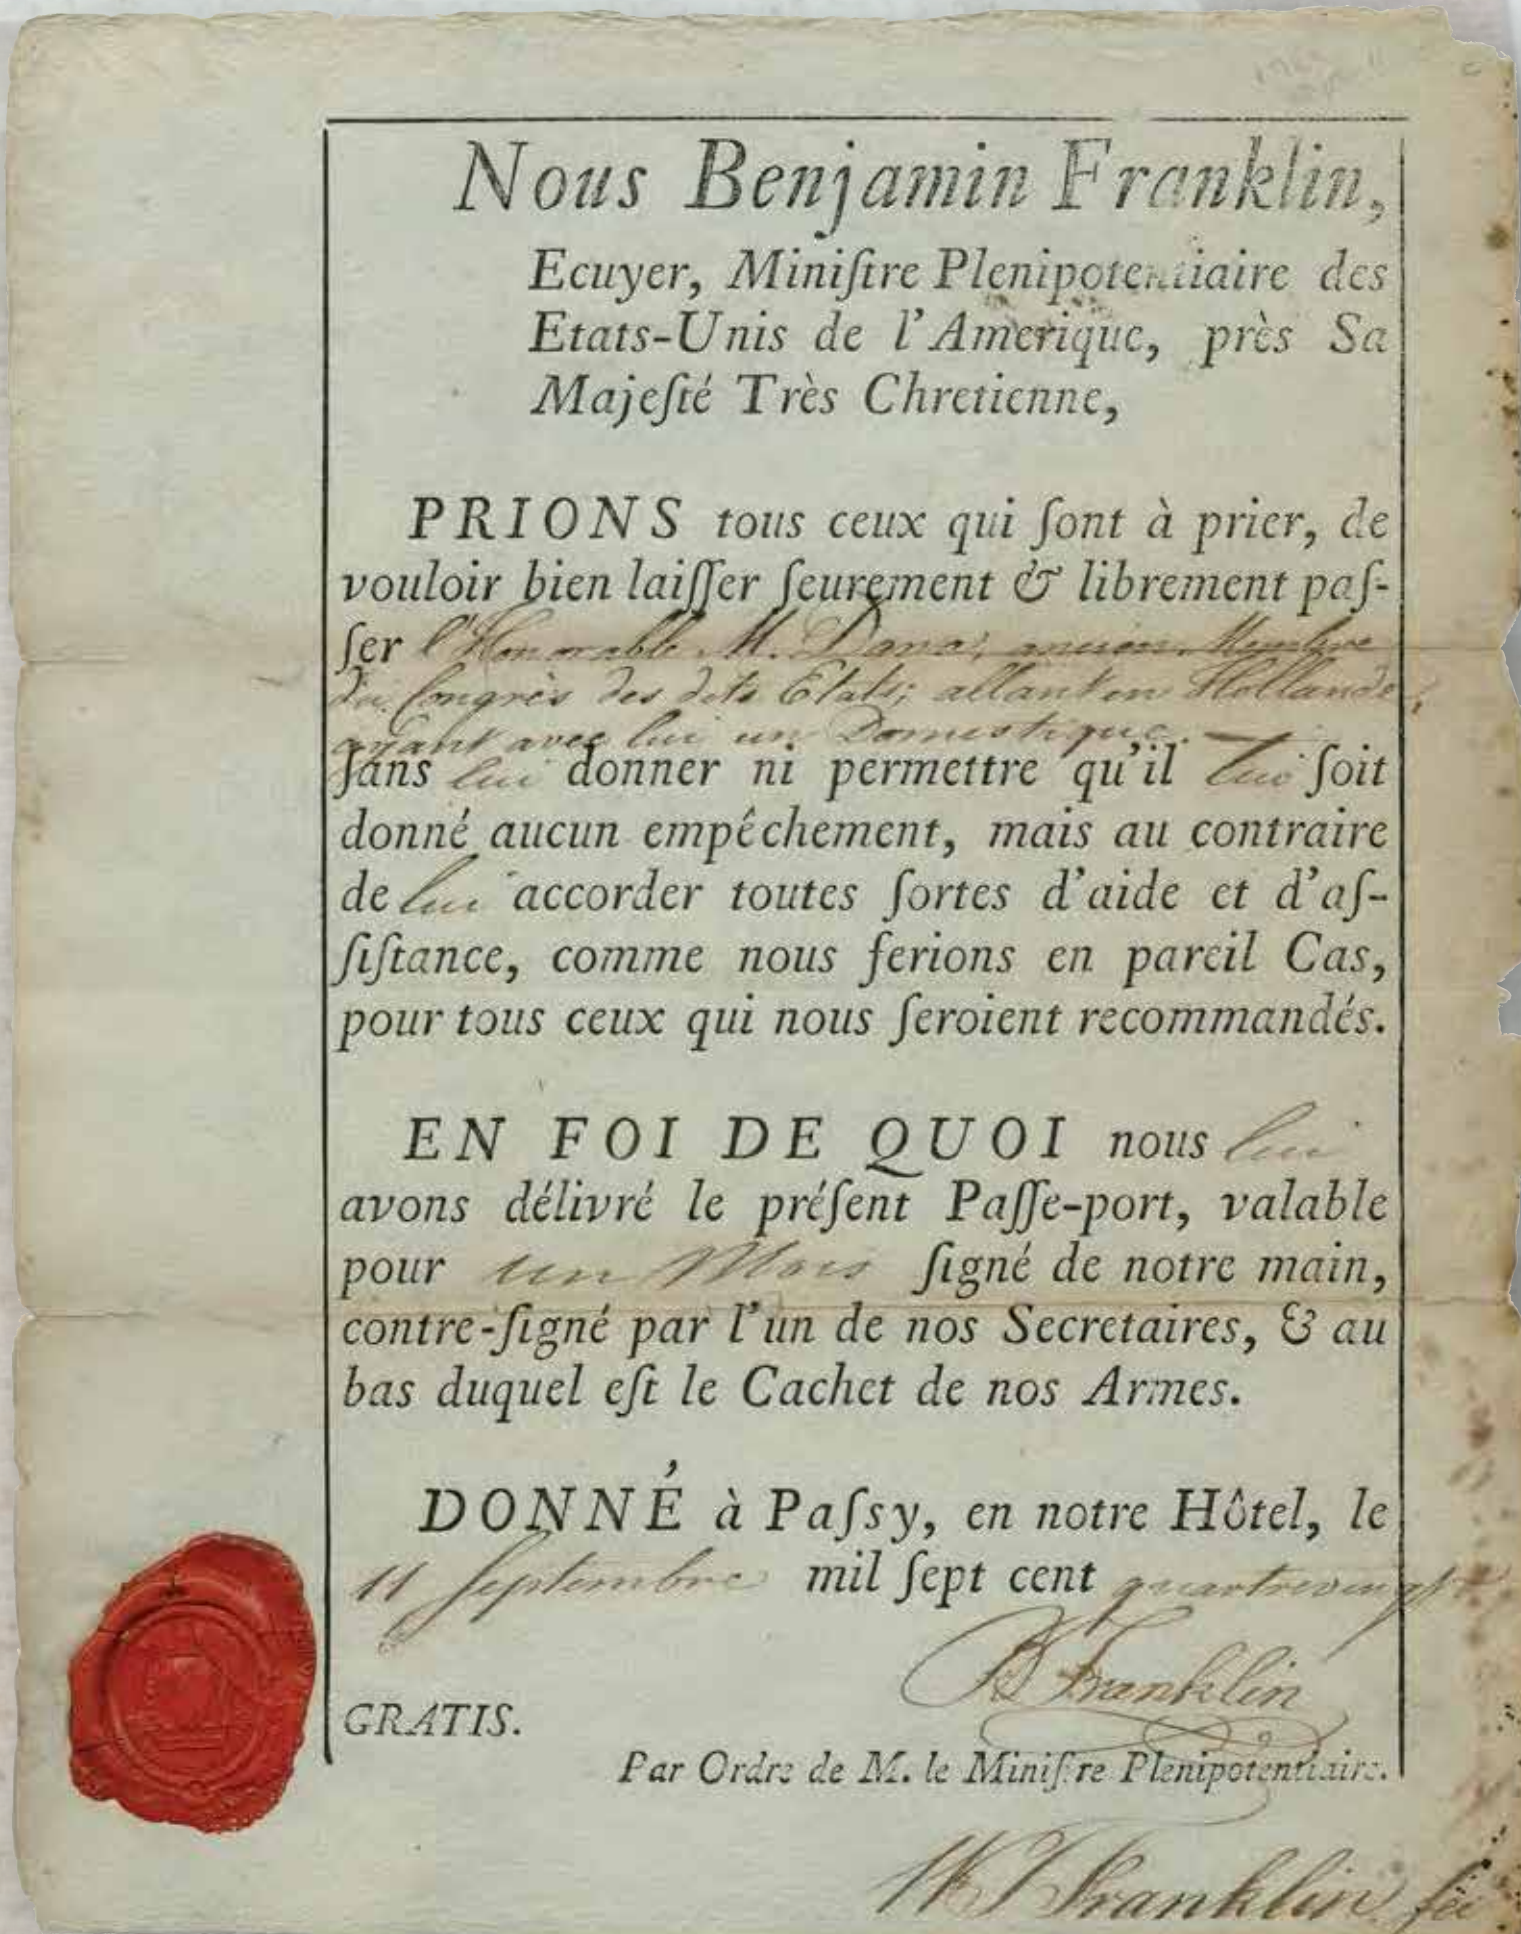 Nous Benjamin Franklin,
Ecuyer, Miniſtre Plenipotentiaire des
Etats-Unis de l'Amerique, près Sa
Majeſté Très Chretienne,
PRIONS tous ceux qui ſont à prier, de
vouloir bien laiſſer ſeurement & librement paſ-
ſer l'Honorable M. Dana, ancien Membre
du Congrès des dits Etats; allant en Hollande,
ayant avec lui un Domestique.
ſans lui donner ni permettre qu'il lui ſoit
donné aucun empêchement, mais au contraire
de lui accorder toutes ſortes d'aide et d'aſ-
ſiſtance, comme nous ferions en pareil Cas,
pour tous ceux qui nous ſeroient recommandés.
EN FOI DE QUOI nous lui
avons délivré le préſent Paſſe-port, valable
pour un Mois ſigné de notre main,
contre-ſigné par l'un de nos Secretaires, & au
bas duquel eſt le Cachet de nos Armes.
DONNÉ à Paſsy, en notre Hôtel, le
11 Septembre mil ſept cent quatrevingt
B Franklin
GRATIS.
Par Ordre de M. le Miniſtre Plenipotentiaire.
W T Franklin